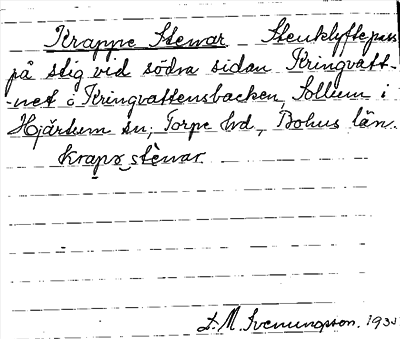 Krappe Stenar Stenklyftepass
på stig vid södra sidan Kringvatt-
-net o Kringvattensbacken, Sollum i
Hjärtum sn, Torpe hd, Bohus län.
krapə stènar
L. M. Svenungsson. 193